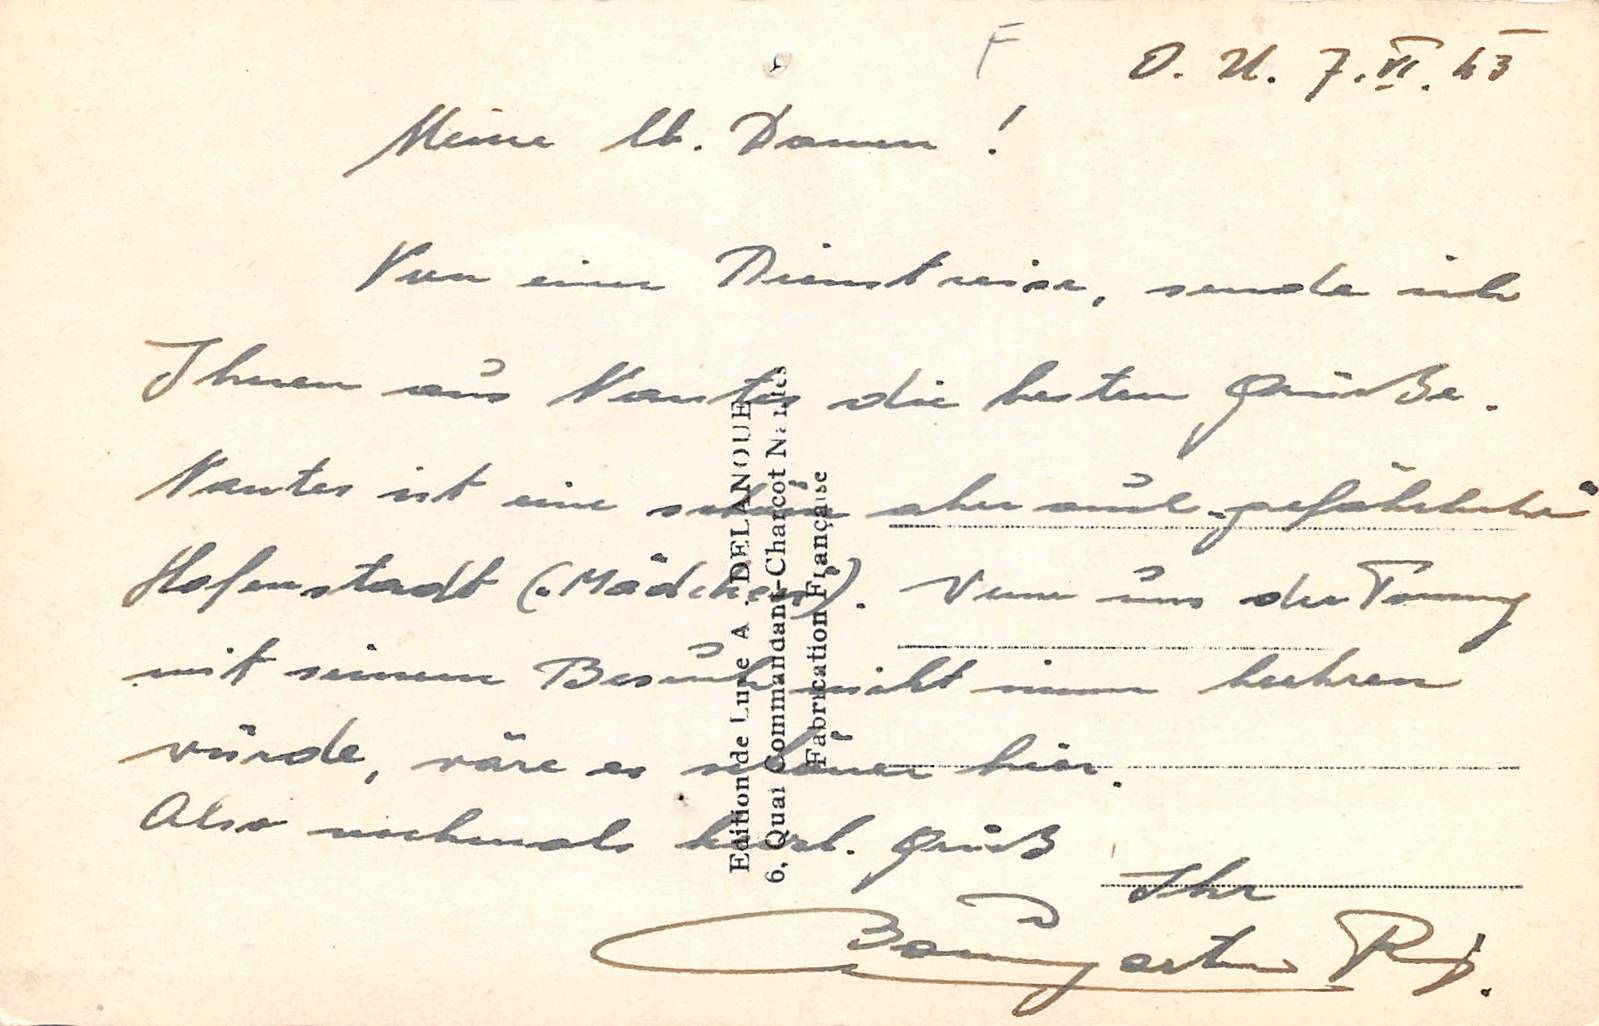 F
O. U. 7. VI. 43
Meine lb. Damen!
Von einer Dienstreise, sende ich
Ihnen aus Nantes die besten Grüße.
Nantes ist eine schöne aber auch gefährliche
Hafenstadt (Mädchen!). Wenn uns der Tommy
mit seinem Besuch nicht immer beehren
würde, wäre es schöner hier.
Also nochmals herzl. Gruß
Ihr
Baumgartner
Edition de Luxe A. DELANOUE
6, Quai Commandant-Charcot Nantes
Fabrication Française